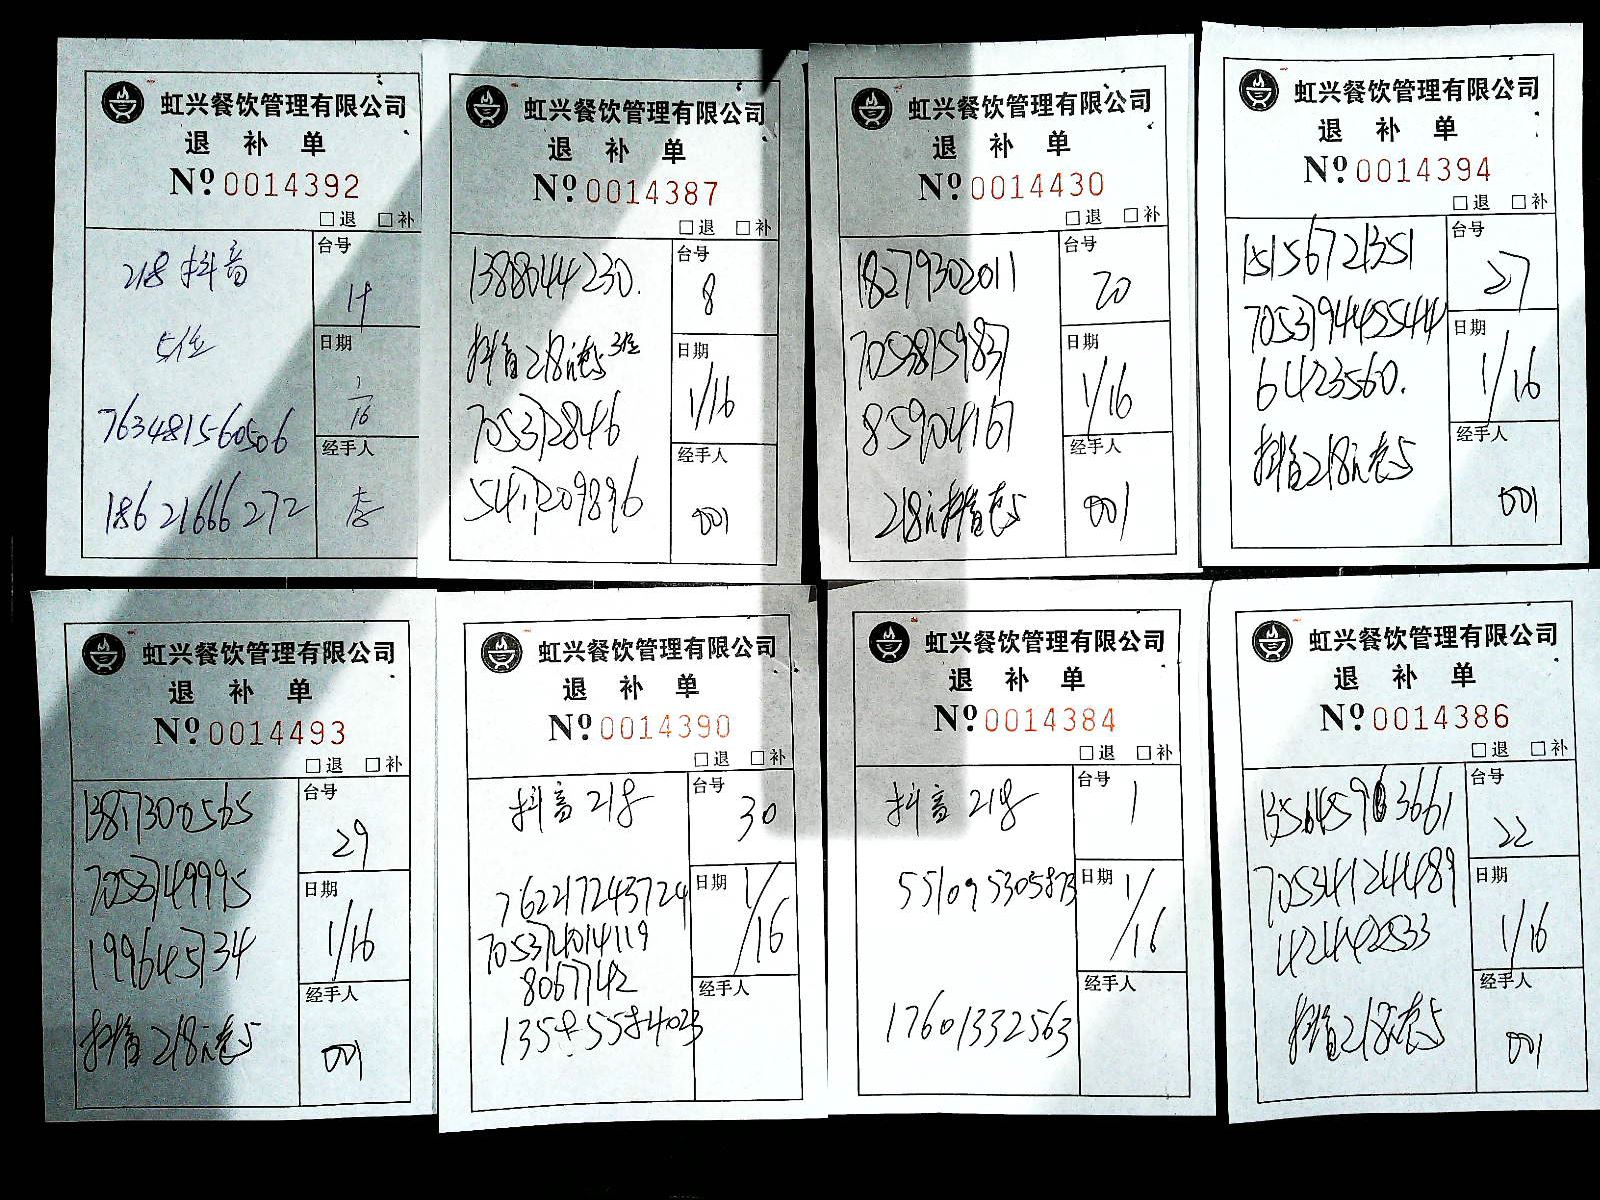 虹兴餐饮管理有限公司
退 补 单
Nº 0014392
□退 □补
218 抖音
5位
763481560506
18621666272
台号
11
日期
1/16
经手人
李
虹兴餐饮管理有限公司
退 补 单
Nº 0014387
□退 □补
13880144230.
抖音218元套5 3位
705372846
5417209896
台号
8
日期
1/16
经手人
001
虹兴餐饮管理有限公司
退 补 单
Nº 0014430
□退 □补
18279302011
70538159837
859704167
218元抖音套5
台号
20
日期
1/16
经手人
001
虹兴餐饮管理有限公司
退 补 单
Nº 0014394
□退 □补
15156721351
7053794455444
61423560.
抖音218元套5
台号
27
日期
1/16
经手人
001
虹兴餐饮管理有限公司
退 补 单
Nº 0014493
□退 □补
7053749995
199645734
抖音218元套5
台号
29
日期
1/16
经手人
001
虹兴餐饮管理有限公司
退 补 单
Nº 0014390
□退 □补
抖音 218
762217243724
7053724014119
8067742
台号
30
日期
1/16
经手人
虹兴餐饮管理有限公司
退 补 单
Nº 0014384
□退 □补
抖音 218
551095305873
17601332563
台号
1
日期
1/16
经手人
虹兴餐饮管理有限公司
退 补 单
Nº 0014386
□退 □补
705341244489
424492533
抖音218元套5
台号
22
日期
1/16
经手人
001